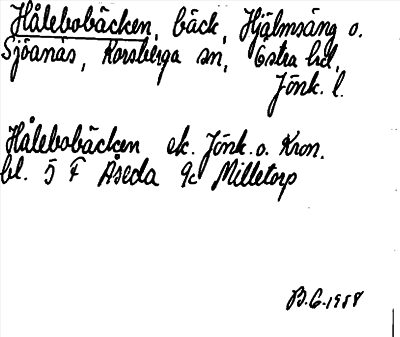 Hålebobäcken, bäck, Hjälmsäng o.
Sjöanäs, Korsberga sn, Östra hd,
Jönk. l.
Hålebobäcken ek. Jönk. o. Kron.
bl. 5 F Åseda 9c Milletorp
B.G. 1958